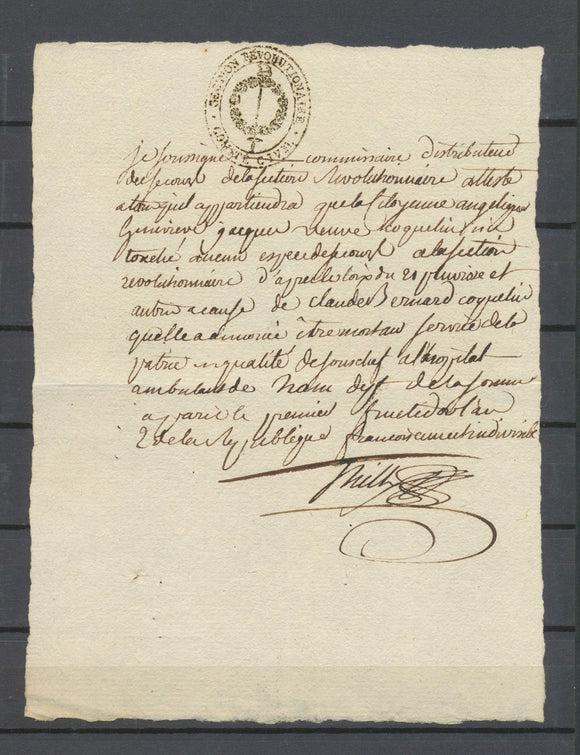 SECTION REVOLUTIONAIRE
COMITÉ CIVIL
je soussigné commissaire distributeur
des secours de la section révolutionnaire atteste
a tous quil appartiendra que la Citoyenne angelique
Genevieve jacquin veuve coquelin na
touché aucun espece de secours a la section
révolutionnaire d'apres la loix du 21 pluviose et
autre a cause de claude Bernard coquelin
quelle a anoncé être mort au service de la
patrie en qualité de souschef a l'hospital
ambulant de ham dept de la somme
a paris le premier fructidor l'an
2 de la République francoise une et indivisible